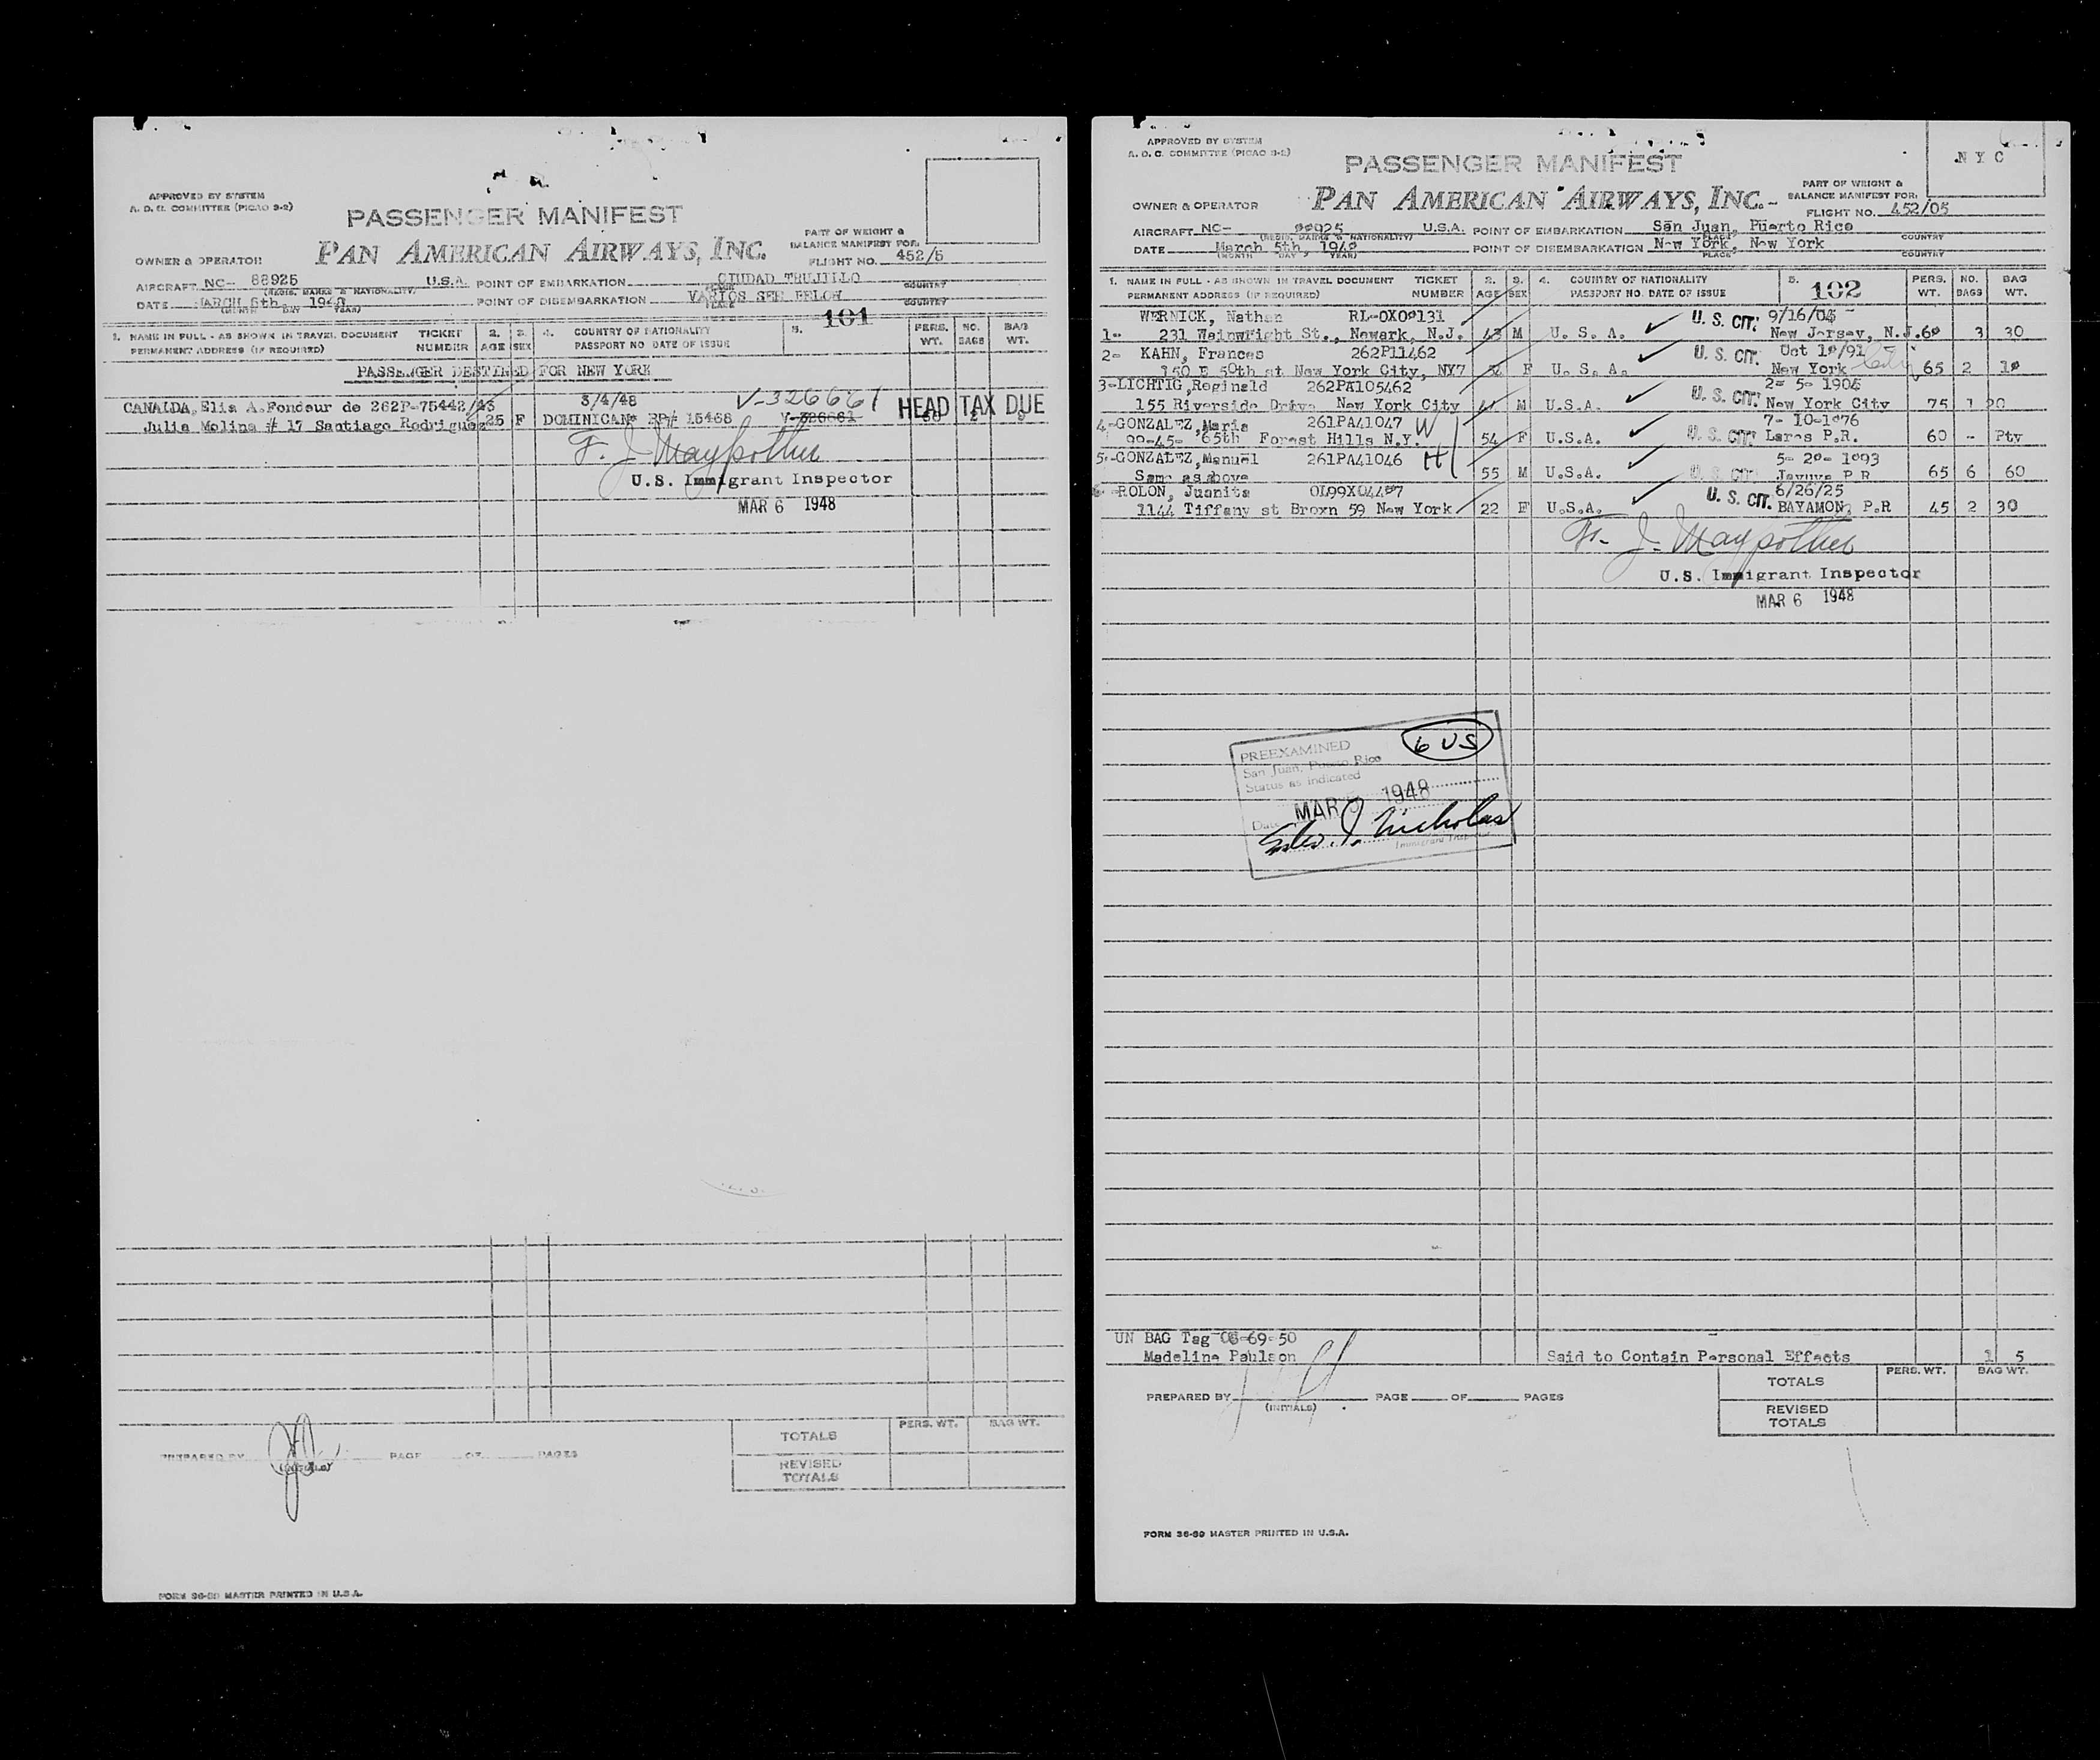 APPROVED BY SYSTEM
A. O. C. COMMITTEE (PICAO 3-2)
PASSENGER MANIFEST
OWNER & OPERATOR PAN AMERICAN AIRWAYS, INC.
PART OF WEIGHT &
BALANCE MANIFEST FOR:
FLIGHT NO. 452/5
AIRCRAFT NC- 88925 U.S.A. POINT OF EMBARKATION CIUDAD TRUJILLO
(REGIS. MARKS & NATIONALITY) PLACE COUNTRY
DATE MARCH 5th 1948 POINT OF DISEMBARKATION VARIOS SEE BELOW
(MONTH DAY YEAR) PLACE COUNTRY
1. NAME IN FULL - AS SHOWN IN TRAVEL DOCUMENT TICKET 2. 3. 4. COUNTRY OF NATIONALITY 5. 101 PERS. NO. BAG
PERMANENT ADDRESS (IF REQUIRED) NUMBER AGE SEX PASSPORT NO DATE OF ISSUE WT. BAGS WT.
PASSENGER DESTINED FOR NEW YORK
CANALDA, Elia A. Fondeur de 262P-75442/43 3/4/48 V-326661 HEAD TAX DUE
Julia Molina # 17 Santiago Rodriguez 25 F DOMINICAN* RP# 15468 V-326661
F. J. Maypother
U.S. Immigrant Inspector
MAR 6 1948
TOTALS PERS. WT. BAG WT.
PREPARED BY (INITIALS) PAGE OF PAGES
REVISED
TOTALS
FORM 36-89 MASTER PRINTED IN U.S.A.
APPROVED BY SYSTEM
A. O. C. COMMITTEE (PICAO 3-2)
PASSENGER MANIFEST
NYC
OWNER & OPERATOR PAN AMERICAN AIRWAYS, INC.
PART OF WEIGHT &
BALANCE MANIFEST FOR:
FLIGHT NO. 452/05
AIRCRAFT NC- 88925 U.S.A. POINT OF EMBARKATION San Juan, Puerto Rico
(REGIS. MARKS & NATIONALITY) PLACE COUNTRY
DATE March 5th, 1948 POINT OF DISEMBARKATION New York, New York
(MONTH DAY YEAR) PLACE COUNTRY
1. NAME IN FULL - AS SHOWN IN TRAVEL DOCUMENT TICKET 2. 3. 4. COUNTRY OF NATIONALITY 5. 102 PERS. NO. BAG
PERMANENT ADDRESS (IF REQUIRED) NUMBER AGE SEX PASSPORT NO. DATE OF ISSUE WT. BAGS WT.
WERNICK, Nathan RL-0X08131 U. S. CIT. 9/16/04
1- 231 Wainwright St., Newark, N.J. 43 M U. S. A. New Jersey, N.J. 68 3 30
2- KAHN, Frances 262P11462 U. S. CIT. Oct 18/91
150 E 50th st New York City, NY7 F U. S. A. New York City 65 2 18
3-LICHTIG, Reginald 262PA105462 2- 5- 1906
155 Riverside Drive New York City 41 M U.S.A. U. S. CIT. New York City 75 1 20
4-GONZALEZ, Maria 261PA41047 W 7- 10-1876
99-45- 65th Forest Hills N.Y. 54 F U.S.A. U. S. CIT. Lares P.R. 60 - Pty
5-GONZALEZ, Manuel 261PA41046 H 5- 20- 1893
Same as above 55 M U.S.A. U. S. CIT. Jayuya P R 65 6 60
6-ROLON, Juanita 0L99X04487 6/26/25
1144 Tiffany st Broxn 59 New York 22 F U.S.A. U. S. CIT. BAYAMON, P.R 45 2 30
F. J. Maypother
U.S. Immigrant Inspector
MAR 6 1948
PREEXAMINED 6 US
San Juan, Puerto Rico
Status as indicated
Date MAR 5 1948
Nicholas
Immigrant Inspector
UN BAG Tag 06-69-50
Madeline Paulson Said to Contain Personal Effects 1 5
PREPARED BY (INITIALS) PAGE OF PAGES
TOTALS PERS. WT. BAG WT.
REVISED
TOTALS
FORM 36-89 MASTER PRINTED IN U.S.A.